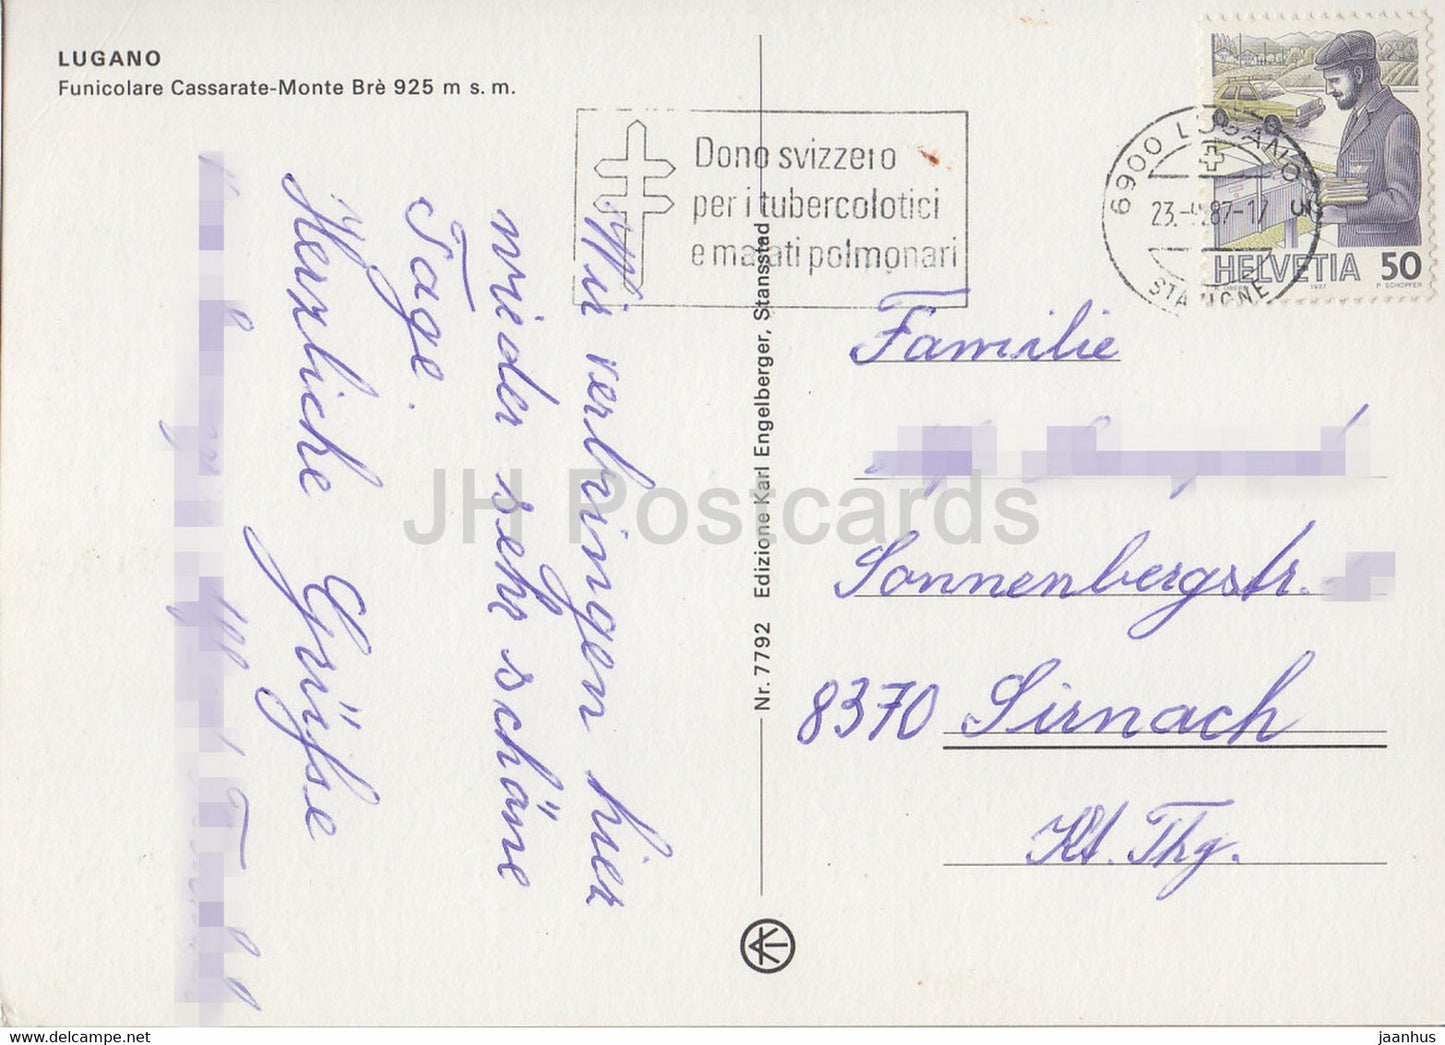 LUGANO
Funicolare Cassarate-Monte Brè 925 m s. m.
Dono svizzero
per i tubercolotici
e malati polmonari
6900 LUGANO 3
STAZIONE
HELVETIA 50
1987
P. SCHOPFER
Wir verbringen hier
wieder sehr schöne
Tage.
Herzliche Grüsse
Nr. 7792 Edizione Karl Engelberger, Stansstad
Familie
Sonnenbergstr.
8370 Sirnach
Kt. Thg.
JH Postcards
www.delcampe.net
jaanhus